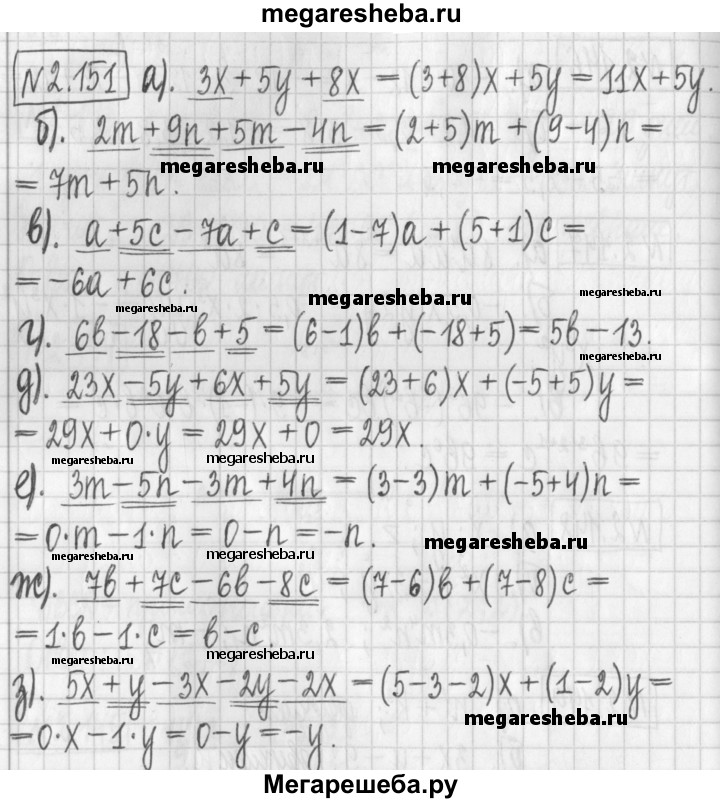 megaresheba.ru
№2.151 а). 3x + 5y + 8x = (3+8)x + 5y = 11x + 5y.
б). 2m + 9n + 5m − 4n = (2+5)m + (9−4)n =
megaresheba.ru megaresheba.ru
= 7m + 5n.
в). a + 5c − 7a + c = (1−7)a + (5+1)c =
= −6a + 6c.
megaresheba.ru megaresheba.ru megaresheba.ru megaresheba.ru
г). 6b − 18 − b + 5 = (6−1)b + (−18+5) = 5b − 13.
megaresheba.ru
д). 23x − 5y + 6x + 5y = (23+6)x + (−5+5)y =
= 29x + 0·y = 29x + 0 = 29x.
megaresheba.ru megaresheba.ru
е). 3m − 5n − 3m + 4n = (3−3)m + (−5+4)n =
= 0·m − 1·n = 0 − n = −n.
megaresheba.ru megaresheba.ru megaresheba.ru
ж). 7b + 7c − 6b − 8c = (7−6)b + (7−8)c =
= 1·b − 1·c = b − c.
megaresheba.ru megaresheba.ru
з). 5x + y − 3x − 2y − 2x = (5−3−2)x + (1−2)y =
megaresheba.ru
= 0·x − 1·y = 0 − y = −y.
Мегарешеба.ру